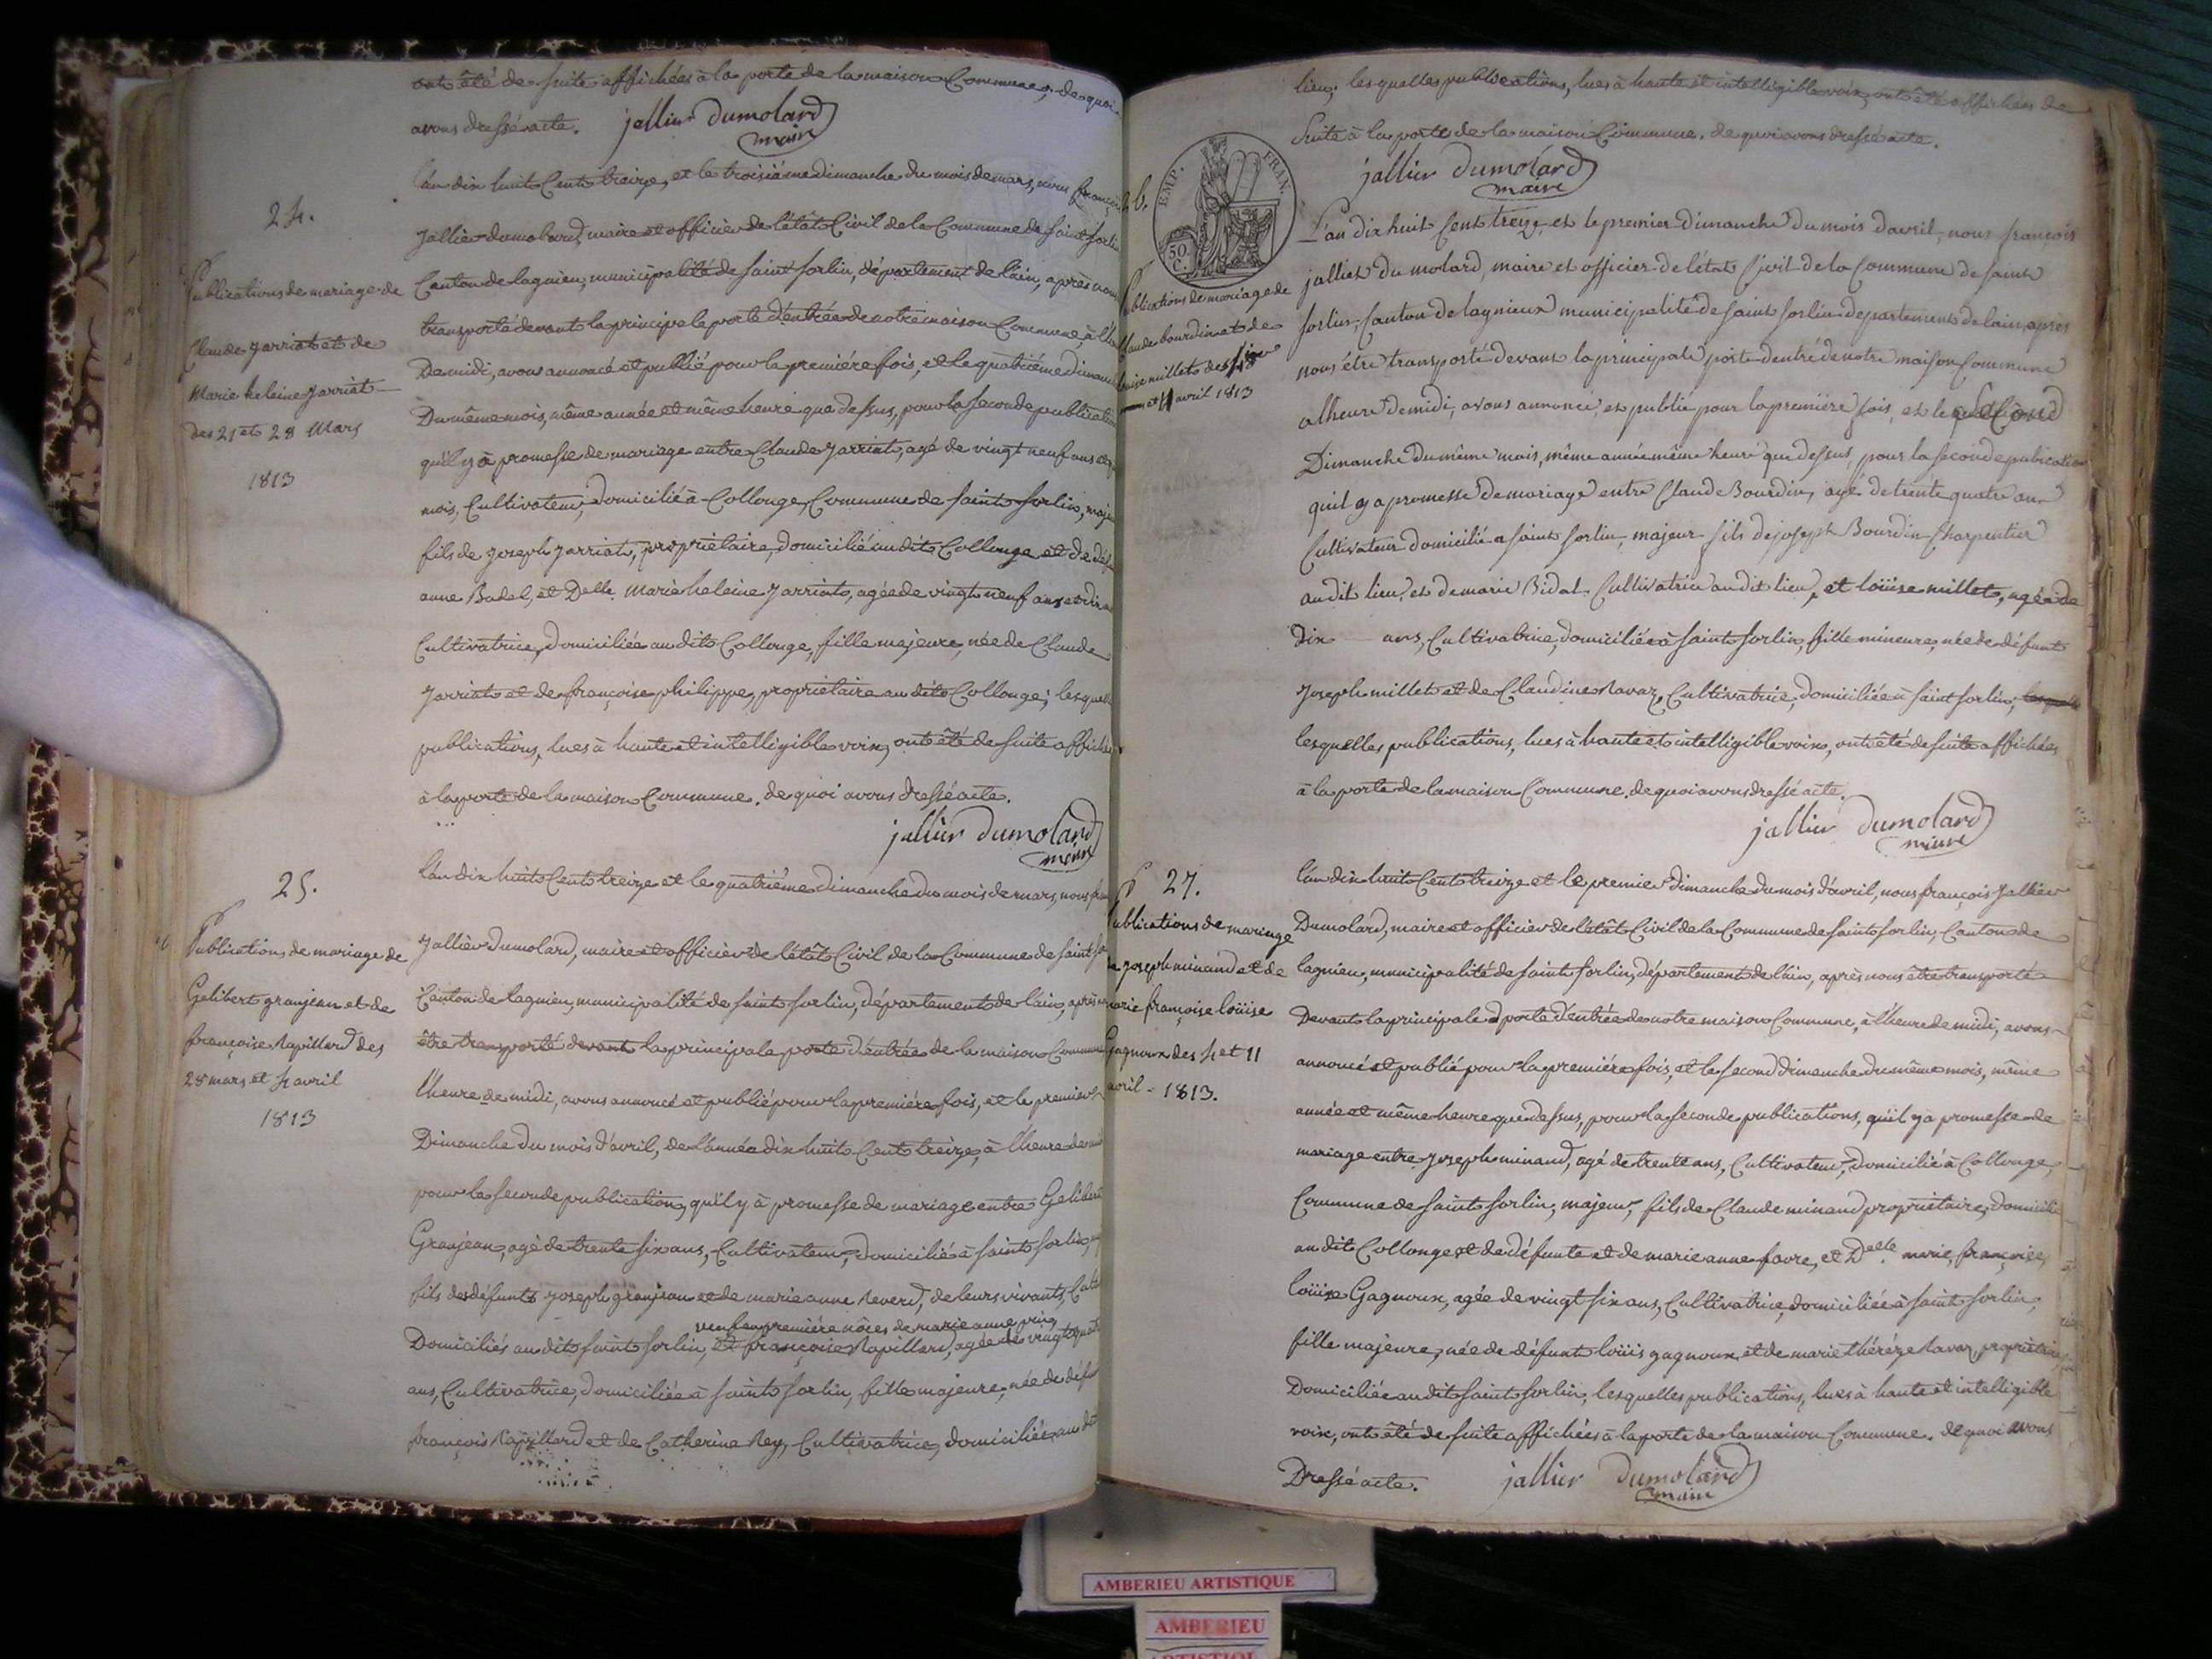 ont été de suite affichées à la porte de la maison Commune, de quoi
avons dressé acte. jallier Dumolard
maire
24.
Publications de mariage de
Claude Jarriat et de
Marie heleine Jarriat
des 21 et 28 Mars
1813
l'an dix huit Cent treize, et le troisième dimanche du mois de mars, nous françois
Jallier dumolard, maire et officier de l'état Civil de la Commune de saint sorlin
Canton de lagnieu, municipalité de saint sorlin, département de l'ain, après nous
transporté devant la principale porte d'entrée de notre maison Commune, à l'heure
De midi, avons annoncé et publié pour la première fois, et le quatrième dimanche
Du même mois, même année et même heure que dessus, pour la seconde publication
qu'il y à promesse de mariage entre Claude Jarriat, agé de vingt neuf ans
mois, Cultivateur, domicilié à Collonge, Commune de saint sorlin, maje
fils de Joseph Jarriat, propriétaire, domicilié au dit Collonge et de
anne Badel, et Delle. Marie heleine Jarriat, agée de vingt neuf ans
Cultivatrice, domiciliée au dit Collonge, fille majeure, née de Claude
Jarriat et de françoise philippe, propriétaire au dit Collonge; lesquel
publications, lues à haute et intelligible voix, ont été de suite affichée
à la porte de la maison Commune. de quoi avons dressé acte.
jallier Dumolard
maire
25.
Publications de mariage de
Gelibert granjean et de
françoise Rapillard des
28 mars et 4 avril
1813
l'an dix huit Cent treize et le quatrième dimanche du mois de mars, nous
Jallier dumolard, maire et officier de l'état Civil de la Commune de saint
Canton de lagnieu, municipalité de saint sorlin, département de l'ain, après
être transporté devant la principale porte d'entrée de la maison Commune
l'heure de midi, avons annoncé et publié pour la première fois, et le premier
Dimanche du mois d'avril, de l'année dix huit Cent treize, à l'heure de
pour la seconde publication, qu'il y à promesse de mariage entre Gelibert
Granjean, agé de trente six ans, Cultivateur, domicilié à saint sorlin,
fils des défunts Joseph granjean et de marie anne Reverd, de leurs vivants,
veuf en première nôces de marie anne
Domiciliés au dit saint sorlin, et françoise Rapillard, agée de vingt quatre
ans, Cultivatrice, domiciliée à saint sorlin, fille majeure, née de
françois Rapillard et de Catherine Rey, Cultivatrice, domiciliée au dit
lieu; lesquelles publications, lues à haute et intelligible voix, ont été affichées de
Suite à la porte de la maison Commune. de quoi avons dressé acte.
jallier Dumolard
maire
EMP. FRAN.
50 C.
ublications de mariage de
laude bourdin et de
ouise millet des
et 11 avril 1813
L'an dix huit Cent treize et le premier Dimanche du mois d'avril, nous françois
jallier Du molard, maire et officier de l'état Civil de la Commune de saint
sorlin, Canton de lagnieux municipalité de saint sorlin departement de lain, après
nous être transporté devant la principale porte dentré de notre maison Commune
alheure de midi, avons annoncé et publié pour la première fois, et le second
Dimanche du même mois, même année même heure que dessus, pour la seconde publication
quil y a promesse de mariage entre Claude Bourdin, agé de trente quatre ans
Cultivateur domicilié a saint sorlin, majeur fils de joseph Bourdin Charpentier
audit lieu, et de marie Bidal Cultivatrice audit lieu, et loüise millet, agée de
Dix ans, Cultivatrice, domiciliée à saint sorlin, fille mineure, née de défunt
Joseph millet et de Claudine Ravaz, Cultivatrice, domiciliée à saint sorlin,
lesquelles publications, lues à haute et intelligible voix, ont été de suite affichées
à la porte de la maison Commune. de quoi avons dressé acte.
jallier Dumolard
maire
27.
Publications de mariage
de Joseph minand et de
marie françoise loüise
Gagnoux des 4 et 11
avril - 1813.
l'an dix huit Cent treize et le premier dimanche du mois d'avril, nous françois Jallier
Dumolard, maire et officier de l'état Civil de la Commune de saint sorlin, Canton de
lagnieu, municipalité de saint sorlin, département de l'ain, après nous être transporté
Devant la principale porte d'entrée de notre maison Commune, à l'heure de midi, avons
annoncé et publié pour la première fois, et le second dimanche du même mois, même
année et même heure que dessus, pour la seconde publications, qu'il y à promesse de
mariage entre Joseph minand, agé de trente ans, Cultivateur, domicilié à Collonge,
Commune de saint sorlin, majeur, fils de Claude minand propriétaire, Domicilié
au dit Collonge et de défunte et de marie anne favre, et Delle. marie, françoise,
loüise Gagnoux, agée de vingt six ans, Cultivatrice, domiciliée à saint sorlin,
fille majeure, née de défunt loüis gagnoux et de marie thérèze Ravaz, propriétaire
Domiciliée au dit saint sorlin; lesquelles publications, lues à haute et intelligible
voix, ont été de suite affichées à la porte de la maison Commune. de quoi avons
Dressé acte. jallier Dumolard
maire
AMBERIEU ARTISTIQUE
AMBERIEU
ARTISTIQUE